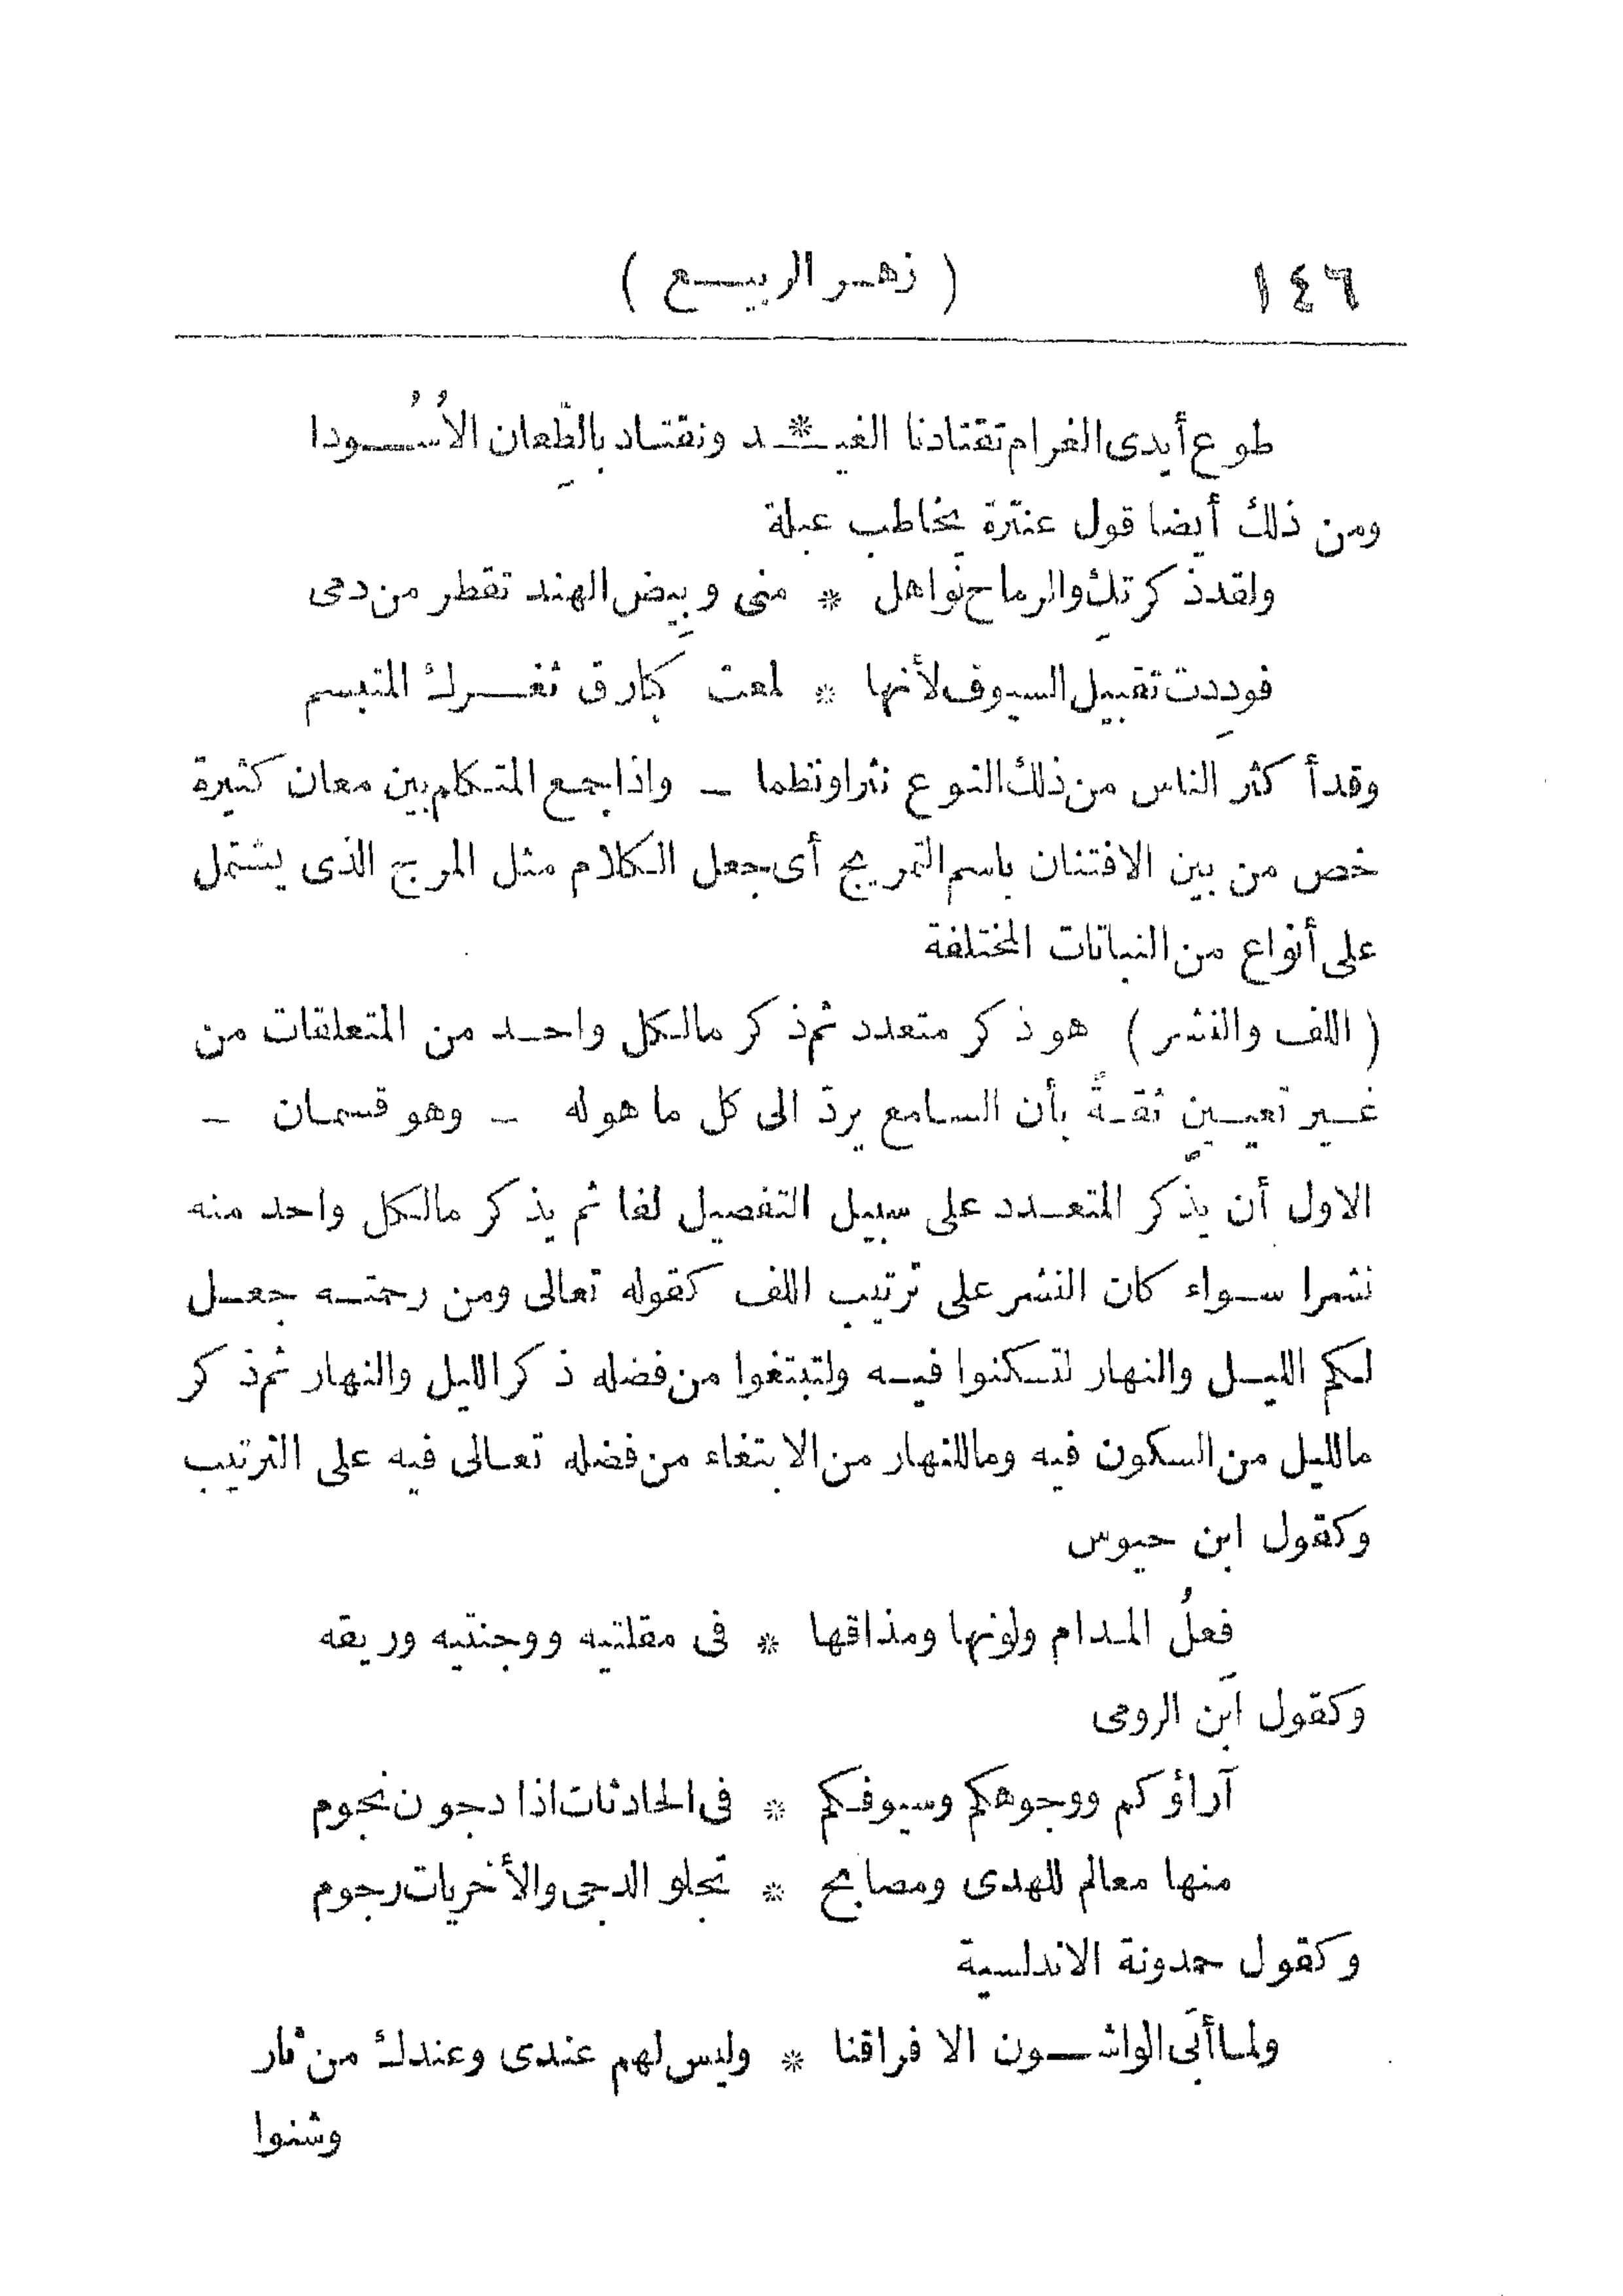 ١٤٦ ( زهر الربيع )
طوع أيدى الغرام تقتادنا الغيـ * ـد ونقتاد بالطِّعان الأُسُودا
ومن ذلك أيضا قول عنترة يخاطب عبلة
ولقد ذكرتكِ والرماح نواهل * منى وبِيض الهند تقطر من دمى
فودِدت تقبيل السيوف لأنها * لمعت كبارق ثغرك المتبسم
وقد أكثر الناس من ذلك النوع نثرا ونظما ـ واذا جمع المتكلم بين معان كثيرة
خص من بين الافتنان باسم التمريج أى جعل الكلام مثل المرج الذى يشتمل
على أنواع من النباتات المختلفة
( اللف والنشر ) هو ذكر متعدد ثم ذكر مالكل واحد من المتعلقات من
غير تعيينٍ ثقةً بأن السامع يردّ الى كل ما هوله ـ وهو قسمان ـ
الاول أن يذكر المتعدد على سبيل التفصيل لفا ثم يذكر مالكل واحد منه
نشرا سواء كان النشر على ترتيب اللف كقوله تعالى ومن رحمته جعل
لكم الليل والنهار لتسكنوا فيه ولتبتغوا من فضله ذكر الليل والنهار ثم ذكر
مالليل من السكون فيه وماللنهار من الابتغاء من فضله تعالى فيه على الترتيب
وكقول ابن حيوس
فِعلُ المدام ولونها ومذاقها * فى مقلتيه ووجنتيه وريقه
وكقول ابن الرومى
آراؤكم ووجوهكم وسيوفكم * فى الحادثات اذا دجون نجوم
منها معالم للهدى ومصابح * تجلو الدجى والأخريات رجوم
وكقول حمدونة الاندلسية
ولما أبَى الواشون الا فراقنا * وليس لهم عندى وعندك من ثار
وشنوا